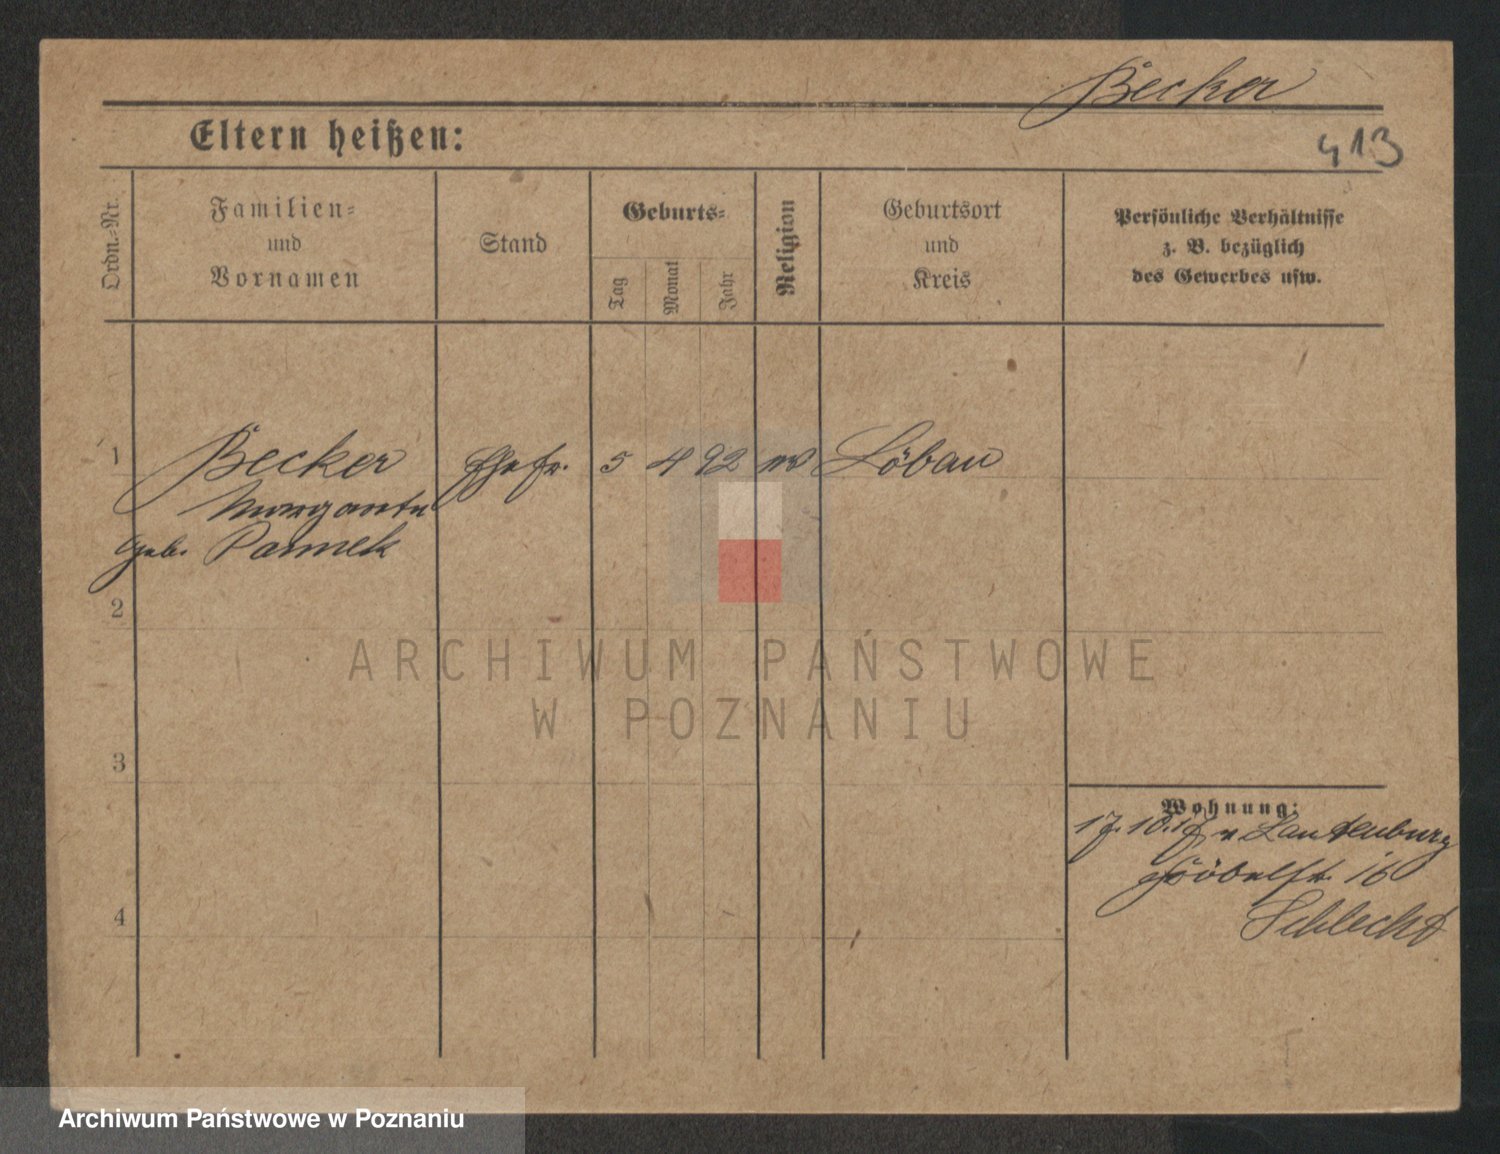 Becker
Eltern heißen:
413
Ordn.-Nr.
Familien-
und
Vornamen
Stand
Geburts-
Tag
Monat
Jahr
Religion
Geburtsort
und
Kreis
Persönliche Verhältnisse
z. B. bezüglich
des Gewerbes usw.
1 Becker Ehefr. 5 4 92 ev Löbau
Margarete
geb. Pannek
2
3
4
Wohnung:
17.10.17 v Lautenburg
16
Schlecht
ARCHIWUM PAŃSTWOWE
W POZNANIU
Archiwum Państwowe w Poznaniu